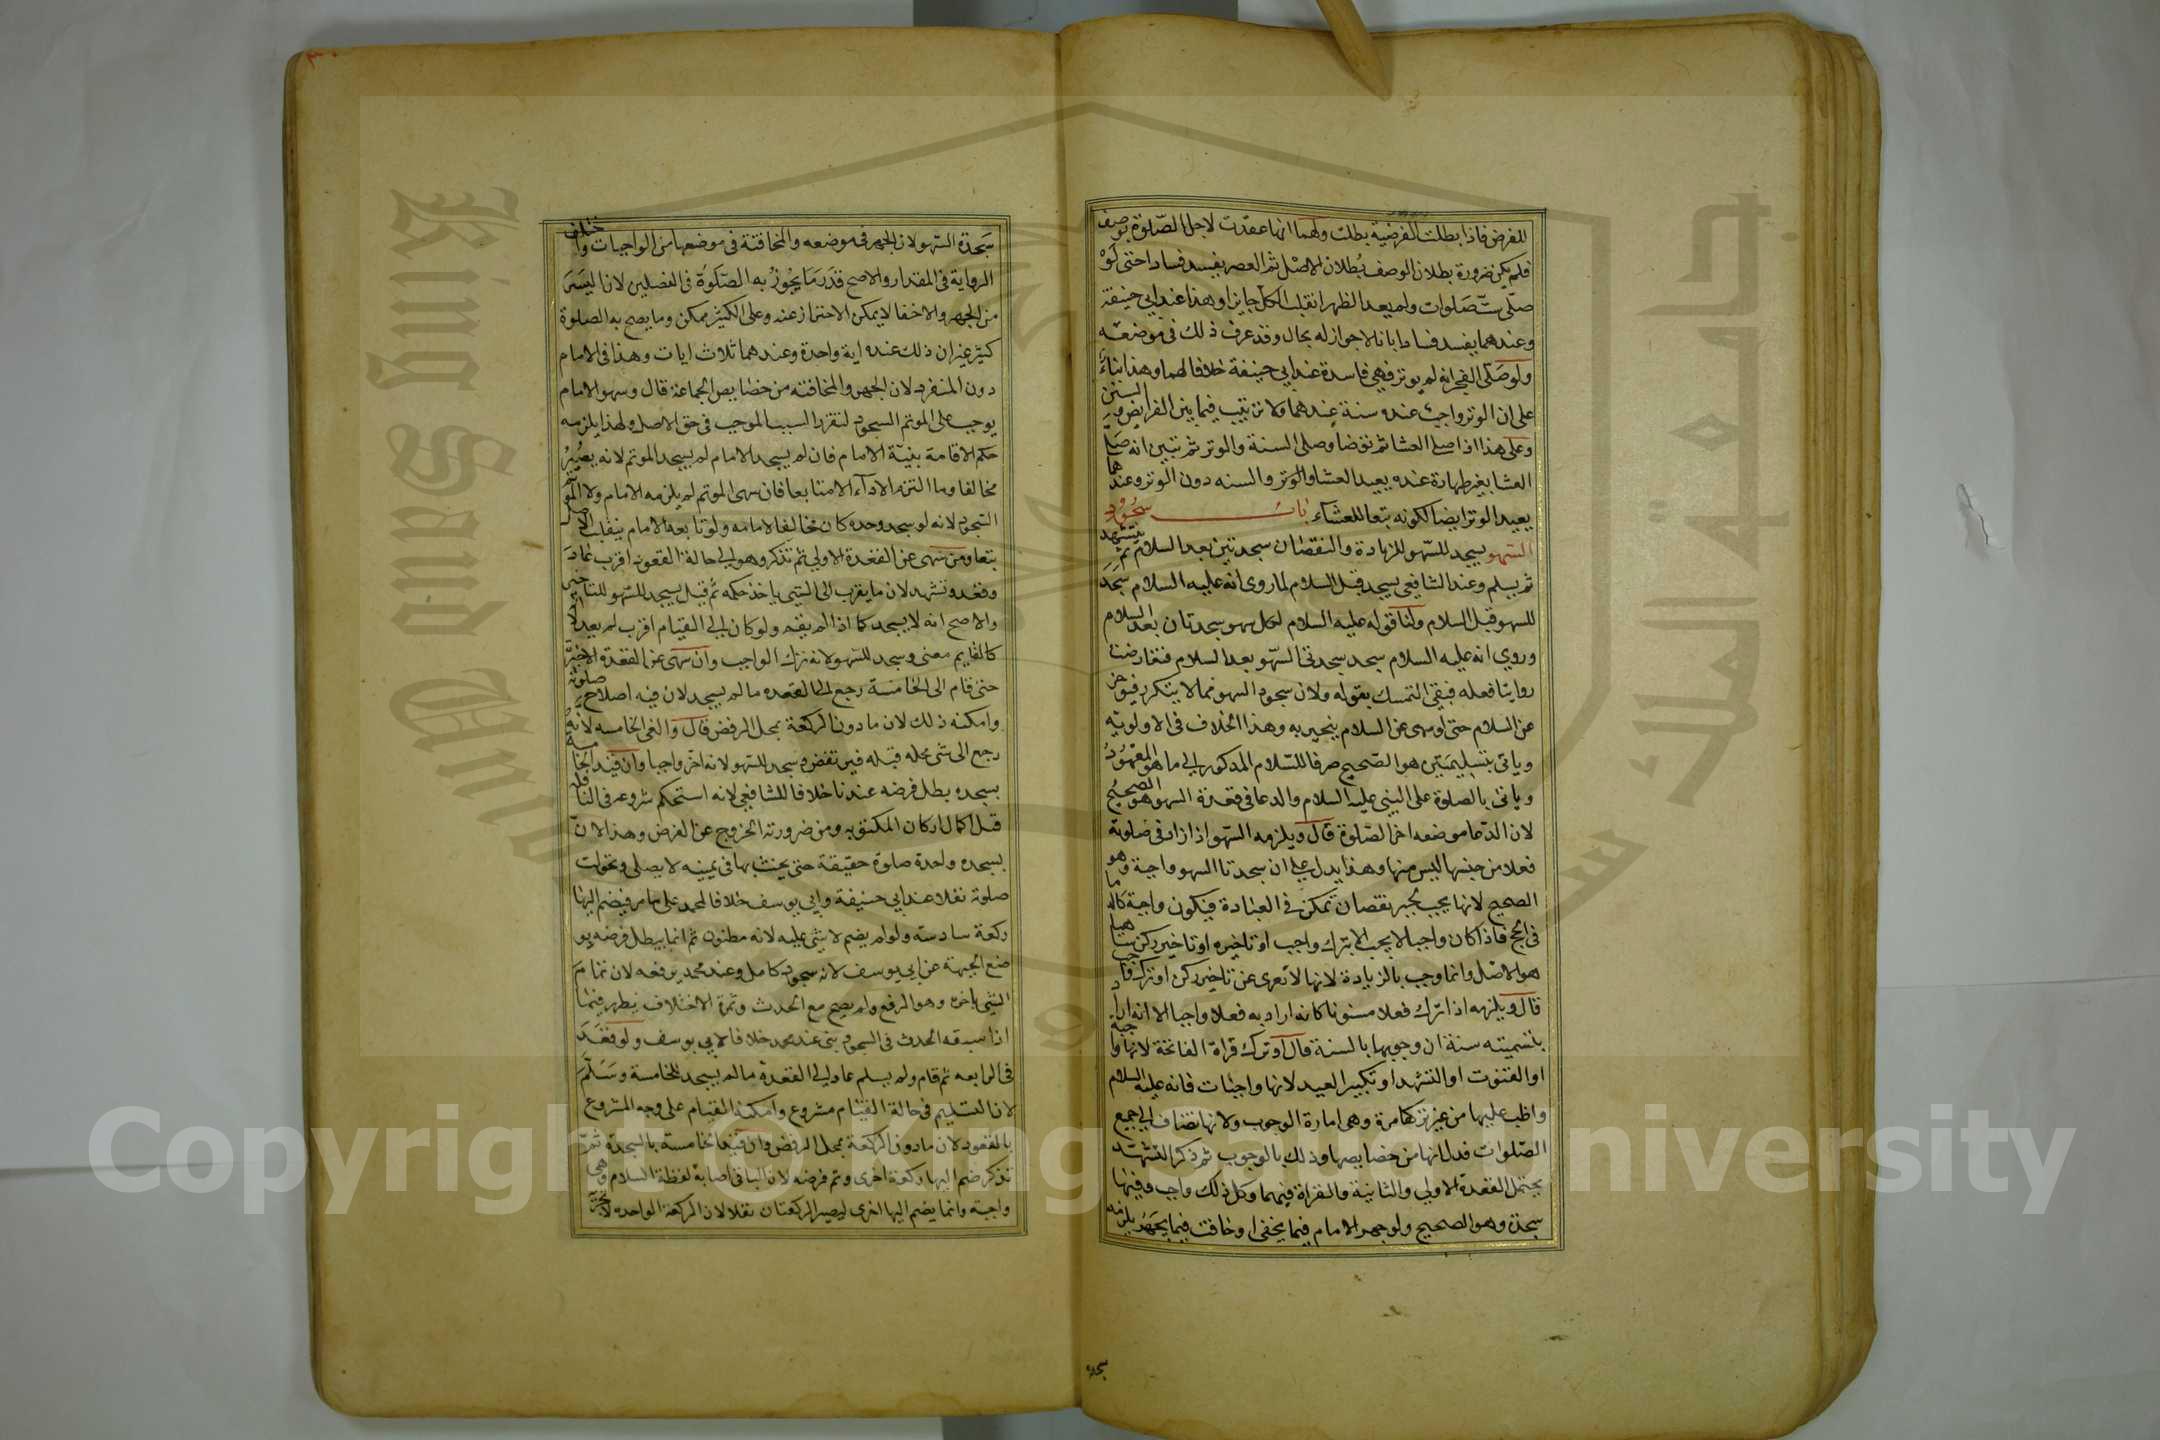 للفرض فاذا بطلت الفرضية بطلت ولهما انها عقدت لاجل الصلوة بوصف
فلم يكن ضرورة بطلان الوصف بطلان الاصل ثم العصر يفسد فسادا حتى لو
صلى ست صلوات ولم يعد الظهر انقلب الكل جايزا وهذا عند ابي حنيفة
وعندهما يفسد فسادا باتا لا جواز له بحال وقد عرف ذلك في موضعه
ولو صلى الفجر انه لم يوتر فهي فاسدة عند ابي حنيفة خلافا لهما وهذا بناء
على ان الوتر واجب عنده سنة عندهما ولا ترتيب فيما بين الفرايض و السنن
وعلى هذا اذا صلى العشا ثم توضا وصلى السنة والوتر ثم تبين انه صلى
العشا بغير طهارة عنده يعيد العشا والوتر والسنه دون الوتر وعندهما
يعيد الوتر ايضا لكونه تبعا للعشاء باب سجود
السهو يسجد للسهو للزيادة والنقصان سجدتين بعد السلام ثم يتشهد
ثم يسلم وعند الشافعي يسجد قبل السلام لما روى انه عليه السلام سجد
للسهو قبل السلام ولنا قوله عليه السلام لكل سهو سجدتان بعد السلام
وروي انه عليه السلام سجد سجدتي السهو بعد السلام فتعارضت
روايتا فعله فبقي التمسك بقوله ولان سجود السهو مما لا يتكرر فيوخر
عن السلام حتى لو سهى عن السلام ينجبر به وهذا الخلاف في الاولوية
وياتي بتسليمتين هو الصحيح صرفا للسلام المذكور الى ما هو المعهود
وياتي بالصلوة على النبي عليه السلام والدعا في قعدة السهو هو الصحيح
لان الدعا موضعه اخر الصلوة قال ويلزمه السهو اذا زاد في صلوته
فعلا من جنسها ليس منها وهذا يدل على ان سجدتا السهو واجبة وهو
الصحيح لانها يجب لجبر نقصان تمكن في العبادة فيكون واجبة كالدما
في الحج فاذا كان واجبا لا يجب الا بترك واجب او تاخيره او تاخير ركن ساهيا
هو الاصل وانما وجب بالزيادة لانها لا تعرى عن تاخير ركن او ترك واجب
قال ويلزمه اذا ترك فعلا مسنونا كانه اراد به فعلا واجبا الا انه اراد
بتسميته سنة ان وجوبها بالسنة قال او ترك قراة الفاتحة لانها واجبة
او القنوت او التشهد او تكبير العيد لانها واجبات فانه عليه السلام
واظب عليها من غير تركها مرة وهى امارة الوجوب ولانها تضاف الى جميع
الصلوات فدل انها من خصايصها وذلك بالوجوب ثم ذكر التشهد
يحتمل القعدة الاولى والثانية والقراة فيهما وكل ذلك واجب وفيها
سجدة وهو الصحيح ولو جهر الامام فيما يخفى او خافت فيما يجهر يلزمه
سجدة
سجدة السهو لان الجهر في موضعه والمخافتة في موضعها من الواجبات واختلف
الرواية في المقدار والاصح قدر ما يجوز به الصلوة في الفصلين لان اليسر
من الجهر والاخفا لا يمكن الاحتراز عنه وعلى الكثير ممكن وما يصح به الصلوة
كثير غير ان ذلك عنده اية واحدة وعندهما ثلاث ايات وهذا في الامام
دون المنفرد لان الجهر والمخافته من خصايص الجماعة قال وسهو الامام
يوجب على الموتم السجود لتقرر السبب الموجب في حق الاصل ولهذا يلزمه
حكم الاقامة بنية الامام فان لم يسجد الامام لم يسجد الموتم لانه يصير
مخالفا وما التزم الاداء الا متابعا فان سهى الموتم لم يلزمه الامام ولا الموتم
السجود لانه لو سجد وحده كان مخالفا لامامه ولو تابعه الامام ينقلب الاصل
بتعا ومن سهى عن القعدة الاولى ثم تذكر وهو الى حالة القعود اقرب عاد
وقعد وتشهد لان ما يقرب الى الشيى ياخذ حكمه ثم قيل يسجد للسهو للتاخير
والاصح انه لا يسجد كما اذا لم يقم ولو كان الى القيام اقرب لم يعد لانه
كالقايم معنى وسجد للسهو لانه ترك الواجب وان سهى عن القعدة الاخيرة
حتى قام الى الخامسة رجع الى القعده ما لم يسجد لان فيه اصلاح صلوته
وامكنه ذلك لان ما دون الركعة بمحل الرفض قال والغى الخامسه لانه
رجع الى شى محله قبله فيرتفض وسجد للسهو لانه اخر واجبا وان قيد الخامسة
بسجده بطل فرضه عندنا خلافا للشافعي لانه استحكم شروعه في النافلة
قبل اكمال اركان المكتوبه ومن ضرورته الخروج عن الفرض وهذا لان
بسجده واحدة صلوة حقيقة حتى يحنث بها في يمينه لا يصلى وتحولت
صلوته نفلا عند ابي حنيفة وابي يوسف خلافا لمحمد على ما مر فيضم اليها
ركعة سادسة ولو لم يضم لا شى عليه لانه مظنون ثم انما يبطل فرضه بو
ضع الجبهة عن ابي يوسف لانه سجود كامل وعند محمد يرفعه لان تمام
الشيى باخره وهو الرفع ولم يصح مع الحدث وثمرة الاختلاف يظهر فيما
اذا سبقه الحدث في السجود بنى عند محمد خلافا لابي يوسف ولو قعد
في الرابعه ثم قام ولم يسلم عاد الى القعدة ما لم يسجد للخامسة وسلم
لان التسليم في حالة القيام مشروع وامكنه القيام على وجه المشروع
بالقعود لان ما دون الركعة بمحل الرفض وان قيد الخامسة بالسجدة ثم
تذكر ضم اليها ركعة اخرى وتم فرضه لان الباقى اصابة لفظة السلام وهى
واجبة وانما يضم اليها اخرى ليصير الركعتان نفلا لان الركعة الواحده لا تجزئ
Copyright © King Saud University
King Saud University
جامعة الملك سعود